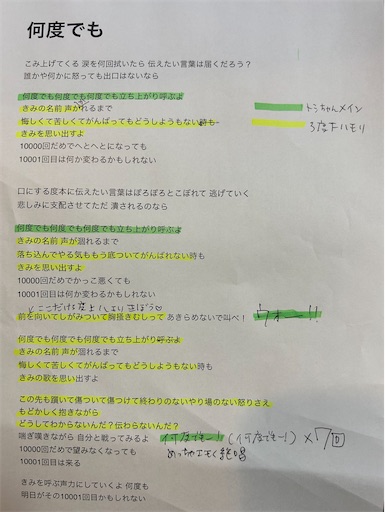 何度でも
こみ上げてくる 涙を何回拭いたら 伝えたい言葉は届くだろう？
誰かや何かに怒っても出口はないなら
何度でも何度でも何度でも立ち上がり呼ぶよ
きみの名前 声が涸れるまで
悔しくて苦しくてがんばってもどうしようもない時も
きみを思い出すよ
10000回だめでへとへとになっても
10001回目は何か変わるかもしれない
トラちゃんメイン
3度下ハモリ
口にする度本に伝えたい言葉はぽろぽろとこぼれて 逃げていく
悲しみに支配させてただ 潰されるのなら
何度でも何度でも何度でも立ち上がり呼ぶよ
きみの名前 声が涸れるまで
落ち込んでやる気ももう底ついてがんばれない時も
きみを思い出すよ
10000回だめでかっこ悪くても
10001回目は何か変わるかもしれない
ここだけ3度上ハモリ
前を向いてしがみついて胸掻きむしって あきらめないで叫べ！
ウォー!!
何度でも何度でも何度でも立ち上がり呼ぶよ
きみの名前 声が涸れるまで
悔しくて苦しくてがんばってもどうしようもない時も
きみの歌を思い出すよ
この先も躓いて傷ついて傷つけて終わりのないやり場のない怒りさえ
もどかしく抱きながら
どうしてわからないんだ？伝わらないんだ？
喘ぎ嘆きながら 自分と戦ってみるよ
何度でもー!(何度でもー!)×7回
10000回だめで望みなくなっても
めっちゃエモく絶唱
10001回目は来る
きみを呼ぶ声力にしていくよ 何度も
明日がその10001回目かもしれない